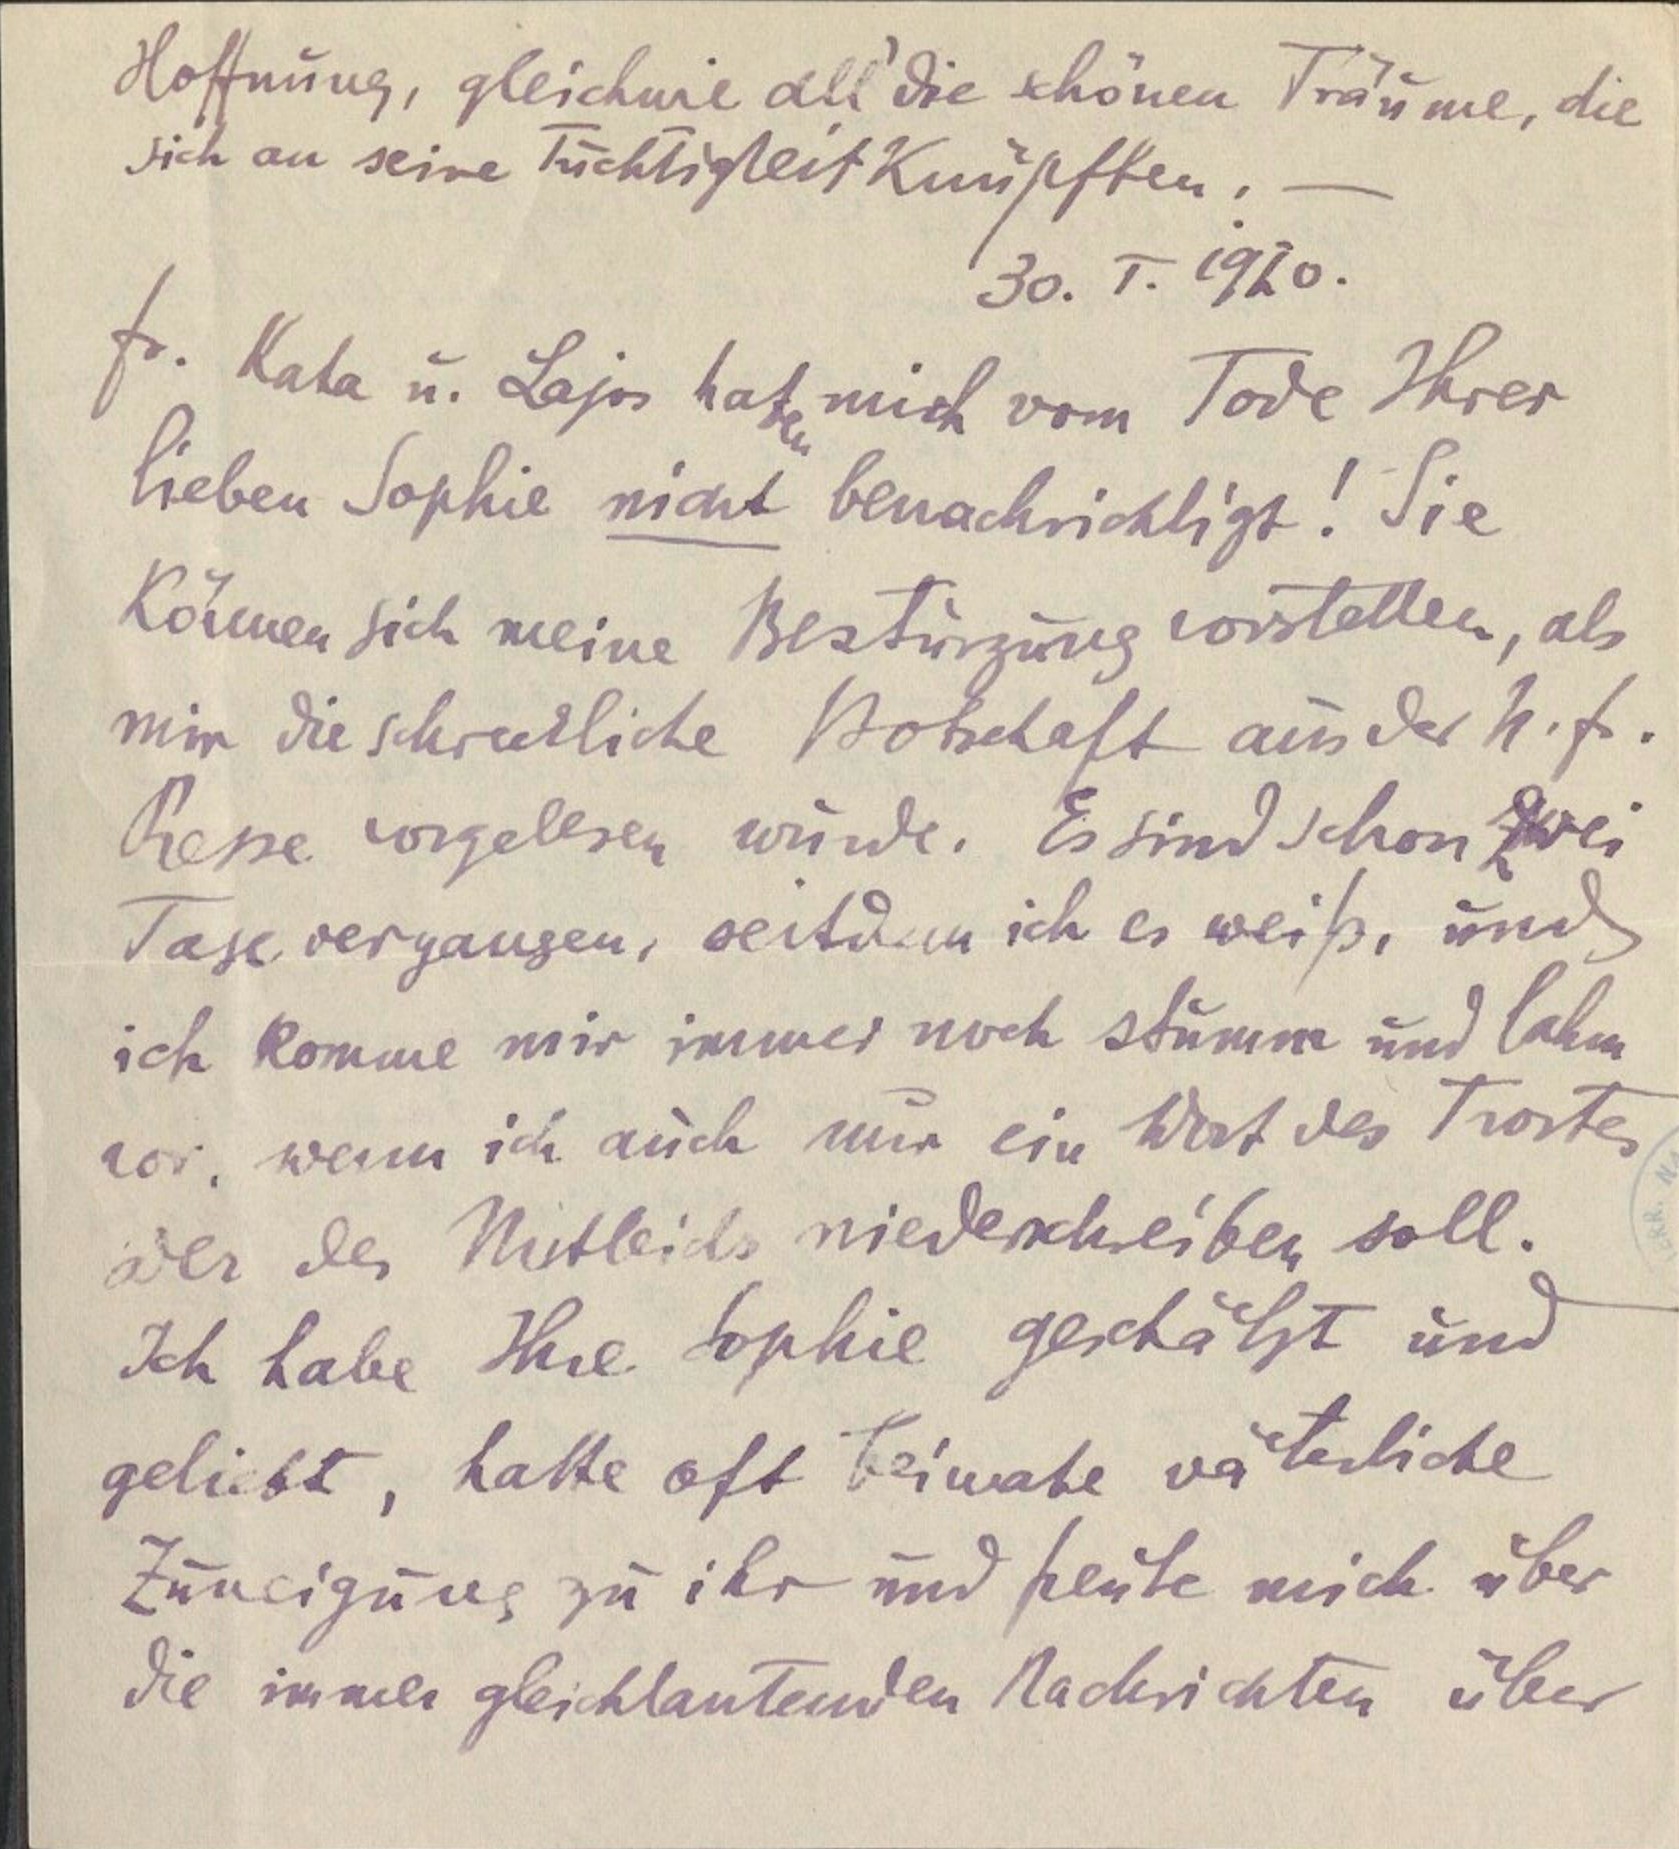 Hoffnung, gleichwie all' die schönen Träume, die
sich an seine Tüchtigkeit Knüpften. —
30. I. 1920.
Fr. Kata u. Lajos hatten mich vom Tode Ihrer
lieben Sophie nicht benachrichtigt! Sie
Können sich meine Bestürzung vorstellen, als
mir die schreckliche Botschaft aus der N. fr.
Presse vorgelesen wurde. Es sind schon zwei
Tage vergangen, seitdem ich es weiß, und
ich komme mir immer noch stumm und lahm
vor, wenn ich auch nur ein Wort des Trostes
oder des Mitleids niederschreiben soll.
Ich habe Ihre Sophie geschätzt und
geliebt, hatte oft beinahe väterliche
Zuneigung zu ihr und freute mich über
die immer gleichlautenden Nachrichten über